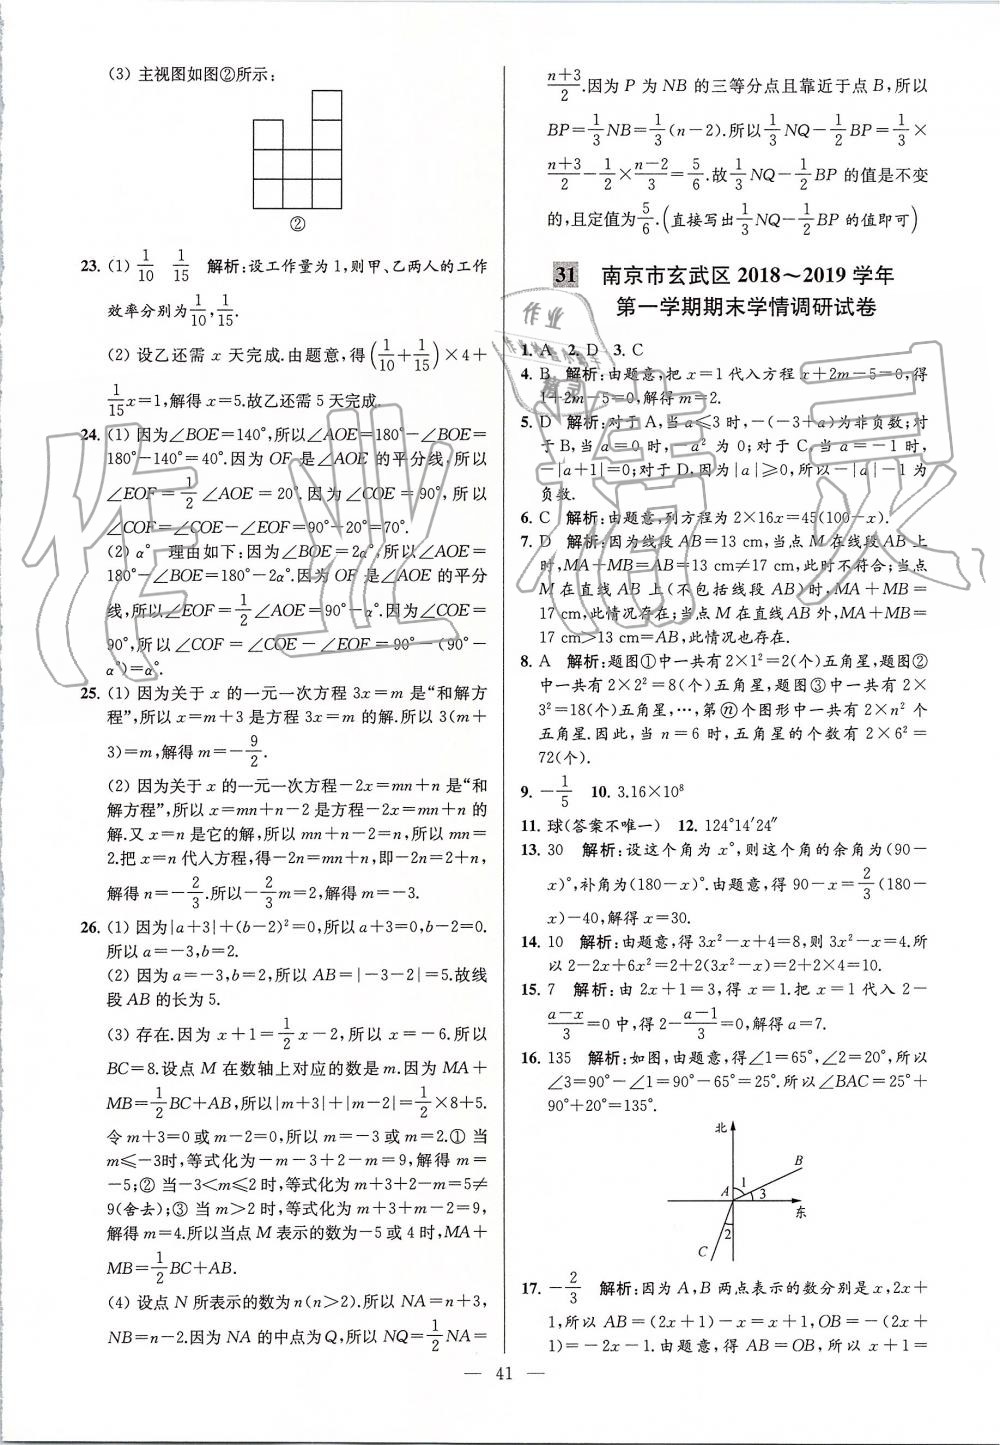 (3) 主视图如图②所示:
②
23. (1) 1/10  1/15  解析:设工作量为1,则甲、乙两人的工作
效率分别为1/10,1/15.
(2) 设乙还需 x 天完成.由题意,得(1/10+1/15)×4+
1/15x=1,解得x=5.故乙还需5天完成.
24. (1) 因为∠BOE=140°,所以∠AOE=180°-∠BOE=
180°-140°=40°.因为OF是∠AOE的平分线,所以
∠EOF=1/2∠AOE=20°.因为∠COE=90°,所以
∠COF=∠COE-∠EOF=90°-20°=70°.
(2) α°  理由如下:因为∠BOE=2α°,所以∠AOE=
180°-∠BOE=180°-2α°.因为OF是∠AOE的平分
线,所以∠EOF=1/2∠AOE=90°-α°.因为∠COE=
90°,所以∠COF=∠COE-∠EOF=90°-(90°-
α°)=α°.
25. (1) 因为关于x的一元一次方程3x=m是“和解方
程”,所以x=m+3是方程3x=m的解.所以3(m+
3)=m,解得m=-9/2.
(2) 因为关于x的一元一次方程-2x=mn+n是“和
解方程”,所以x=mn+n-2是方程-2x=mn+n的
解.又x=n是它的解,所以mn+n-2=n,所以mn=
2.把x=n代入方程,得-2n=mn+n,即-2n=2+n,
解得n=-2/3.所以-2/3m=2,解得m=-3.
26. (1) 因为|a+3|+(b-2)²=0,所以a+3=0,b-2=0.
所以a=-3,b=2.
(2) 因为a=-3,b=2,所以AB=|-3-2|=5.故线
段AB的长为5.
(3) 存在.因为x+1=1/2x-2,所以x=-6.所以
BC=8.设点M在数轴上对应的数是m.因为MA+
MB=1/2BC+AB,所以|m+3|+|m-2|=1/2×8+5.
令m+3=0或m-2=0,所以m=-3或m=2.① 当
m≤-3时,等式化为-m-3+2-m=9,解得m=
-5;② 当-3<m≤2时,等式化为m+3+2-m=5≠
9(舍去);③ 当m>2时,等式化为m+3+m-2=9,
解得m=4.所以当点M表示的数为-5或4时,MA+
MB=1/2BC+AB.
(4) 设点N所表示的数为n(n>2).所以NA=n+3,
NB=n-2.因为NA的中点为Q,所以NQ=1/2NA=
n+3/2.因为P为NB的三等分点且靠近于点B,所以
BP=1/3NB=1/3(n-2).所以1/3NQ-1/2BP=1/3×
n+3/2-1/2×n-2/3=5/6.故1/3NQ-1/2BP的值是不变
的,且定值为5/6.(直接写出1/3NQ-1/2BP的值即可)
31 南京市玄武区2018~2019学年
第一学期期末学情调研试卷
1. A  2. D  3. C
4. B  解析:由题意,把x=1代入方程x+2m-5=0,得
1+2m-5=0,解得m=2.
5. D  解析:对于A,当a≤3时,-(-3+a)为非负数;对
于B,当a=0时,-a²为0;对于C,当a=-1时,
-|a+1|=0;对于D,因为|a|≥0,所以-|a|-1为
负数.
6. C  解析:由题意,列方程为2×16x=45(100-x).
7. D  解析:因为线段AB=13 cm,当点M在线段AB上
时,MA+MB=AB=13 cm≠17 cm,此时不符合;当点
M在直线AB上(不包括线段AB)时,MA+MB=
17 cm,此情况存在;当点M在直线AB外,MA+MB=
17 cm>13 cm=AB,此情况也存在.
8. A  解析:题图①中一共有2×1²=2(个)五角星,题图②
中一共有2×2²=8(个)五角星,题图③中一共有2×
3²=18(个)五角星,…,第ⓝ个图形中一共有2×n²个
五角星.因此,当n=6时,五角星的个数有2×6²=
72(个).
9. -1/5  10. 3.16×10⁸
11. 球(答案不唯一)  12. 124°14′24″
13. 30  解析:设这个角为x°,则这个角的余角为(90-
x)°,补角为(180-x)°.由题意,得90-x=2/3(180-
x)-40,解得x=30.
14. 10  解析:由题意,得3x²-x+4=8,则3x²-x=4.所
以2-2x+6x²=2+2(3x²-x)=2+2×4=10.
15. 7  解析:由2x+1=3,得x=1.把x=1代入2-
a-x/3=0中,得2-a-1/3=0,解得a=7.
16. 135  解析:如图,由题意,得∠1=65°,∠2=20°,所以
∠3=90°-∠1=90°-65°=25°.所以∠BAC=25°+
90°+20°=135°.
北
B
A 1 3
东
2
C
17. -2/3  解析:因为A,B两点表示的数分别是x,2x+
1,所以AB=(2x+1)-x=x+1,OB=-(2x+
1)=-2x-1.由题意,得AB=OB,所以x+1=
— 41 —
作业精灵
作业
精灵